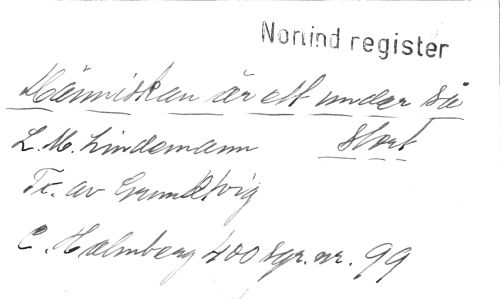 Norlind register
Människan är ett under så
L. M. Lindemann stort
Tr. av Grundtvig
C. Holmberg 400 sgr. nr. 99